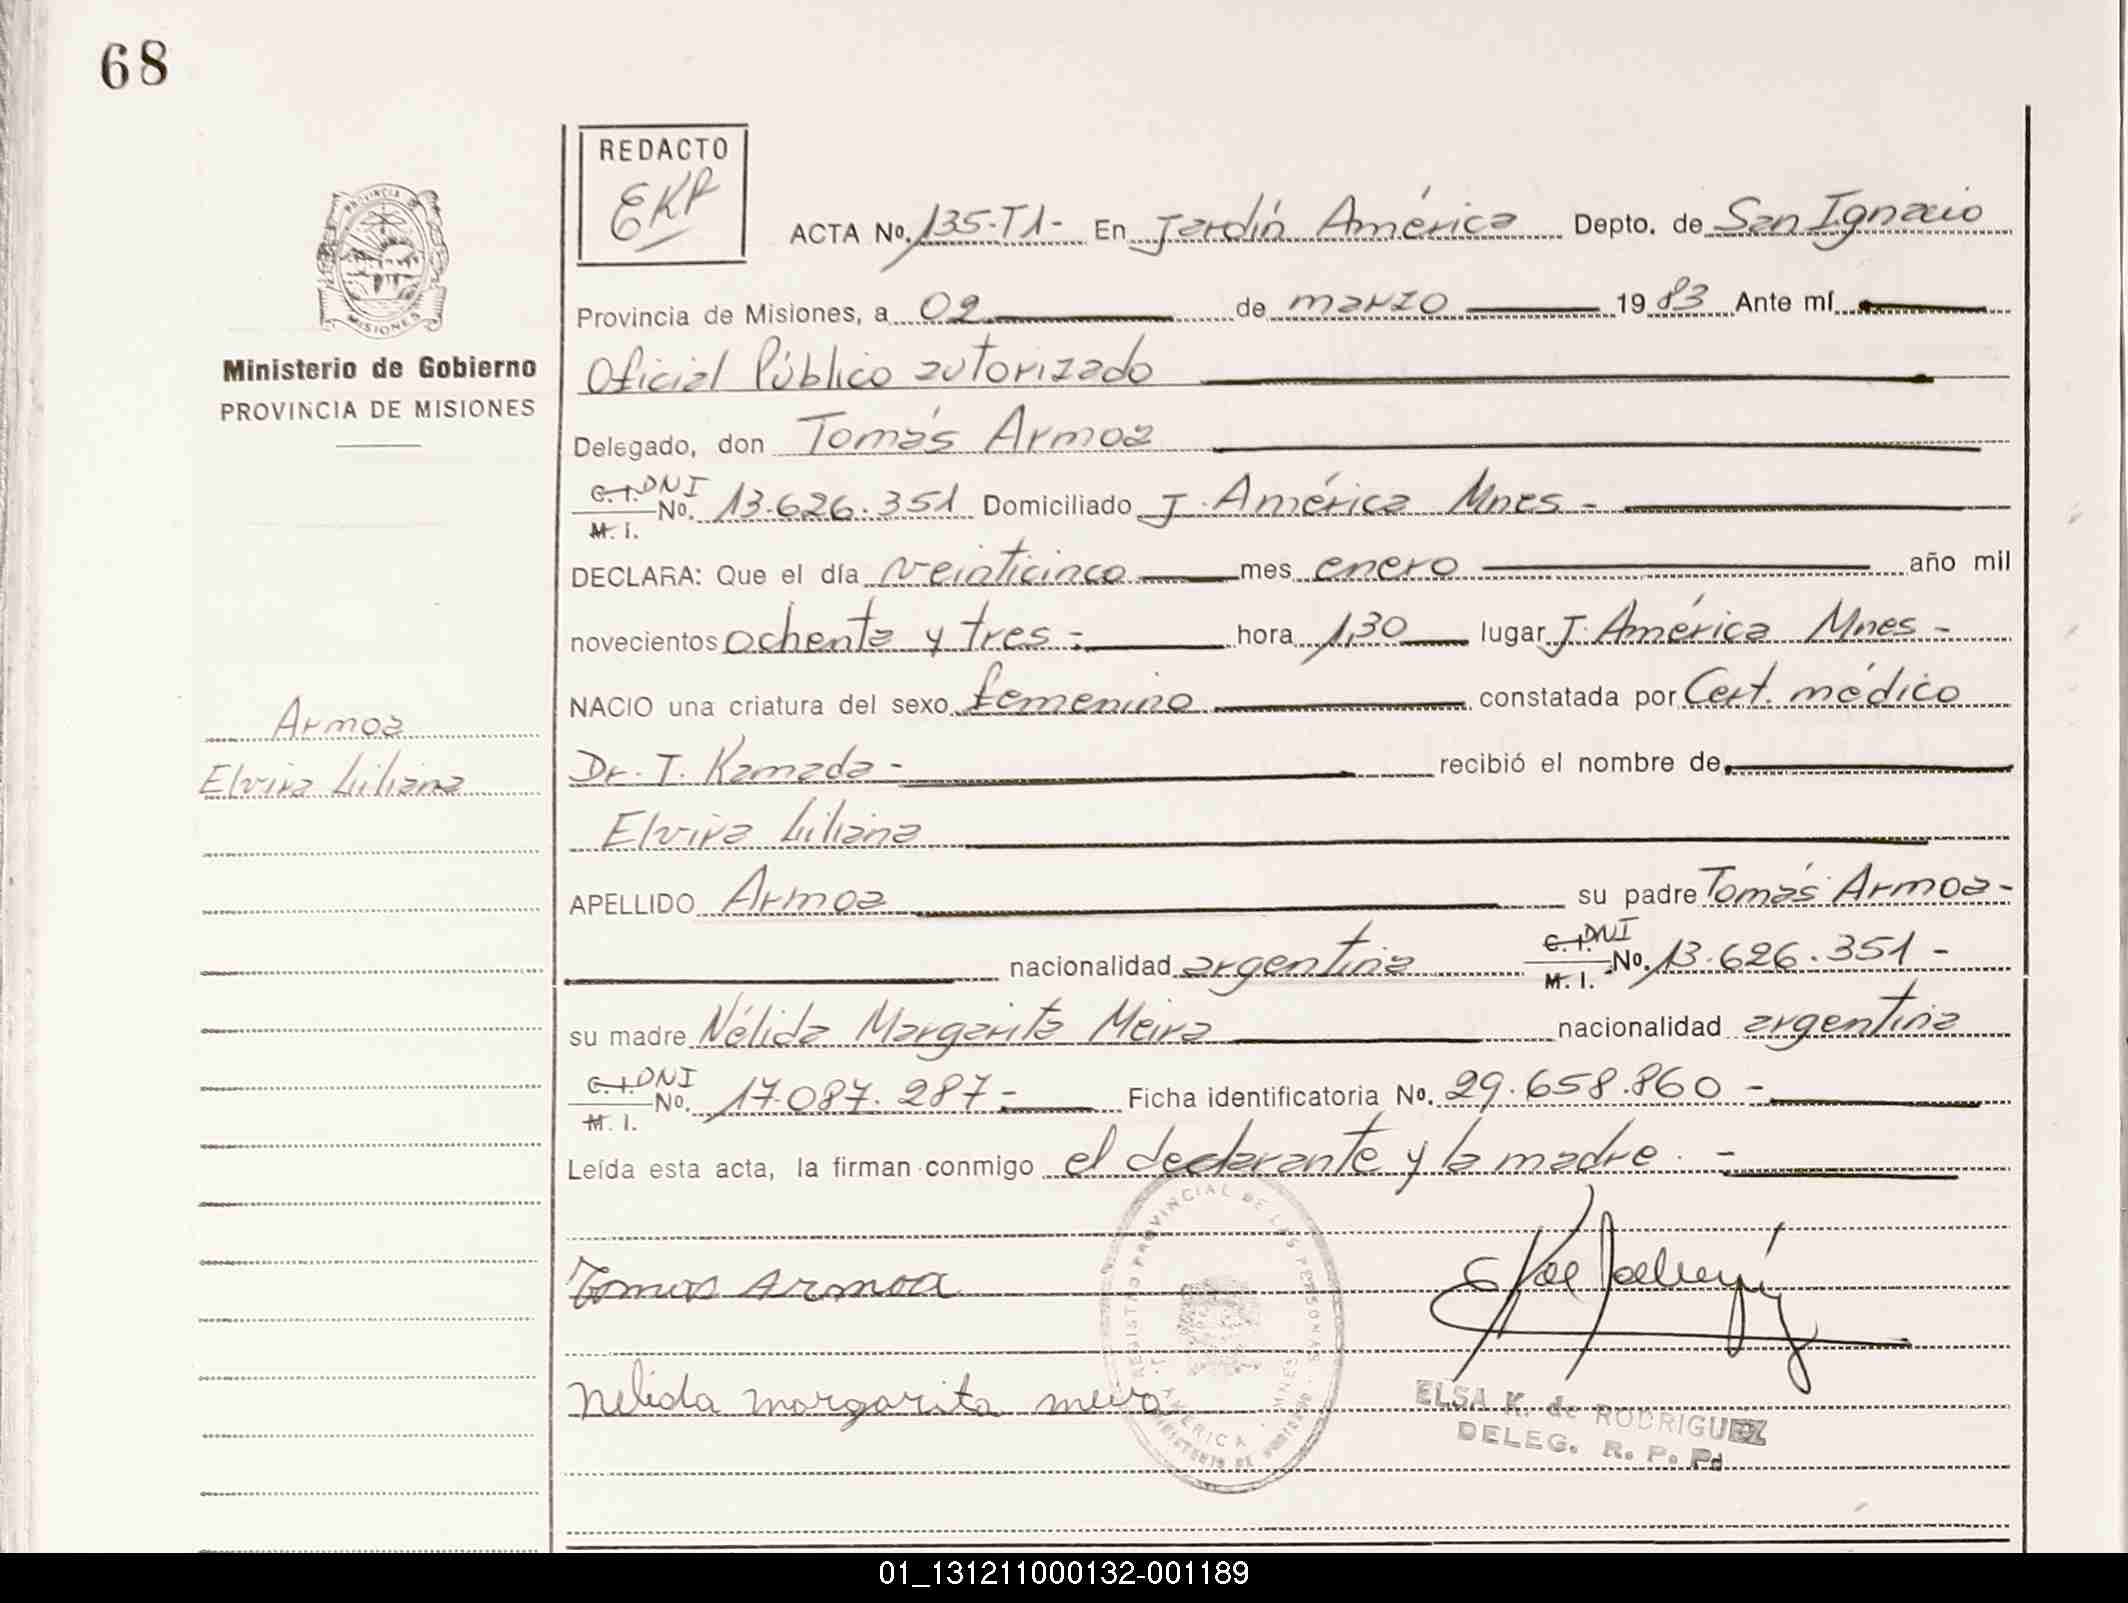 68
REDACTO
EKR
ACTA No. 135-T1- En Jardín América Depto. de San Ignacio
Provincia de Misiones, a 02 de marzo 1983 Ante mí
Oficial Público autorizado
Delegado, don Tomás Armoa
C.I. DNI
M. I. No. 13.626.351 Domiciliado J. América Mnes -
DECLARA: Que el día veinticinco mes enero año mil
novecientos ochenta y tres - hora 1,30 lugar J. América Mnes -
NACIO una criatura del sexo femenino constatada por Cert. médico
Dr. T. Kamada - recibió el nombre de
Elvira Liliana
APELLIDO Armoa su padre Tomás Armoa -
nacionalidad argentina C.I. DNI M. I. No. 13.626.351 -
su madre Nélida Margarita Meira nacionalidad argentina
C.I. DNI
M. I. No. 17.087.287 - Ficha identificatoria No. 29.658.860 -
Leída esta acta, la firman conmigo el declarante y la madre. -
Tomas Armoa
Nelida margarita meira
REGISTRO PROVINCIAL DE LAS PERSONAS
J. AMERICA - MNES
MINISTERIO DE GOBIERNO
ELSA K. de RODRIGUEZ
DELEG. R. P. Pd
PROVINCIA
MISIONES
Ministerio de Gobierno
PROVINCIA DE MISIONES
Armoa
Elvira Liliana
01_131211000132-001189